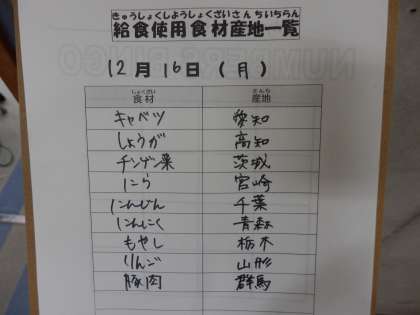 きゅうしょくしようしょくざいさんちいちらん
給食使用食材産地一覧
12月16日(月)
しょくざい さんち
食材 産地
キャベツ 愛知
しょうが 高知
チンゲン菜 茨城
にら 宮崎
にんじん 千葉
にんにく 青森
もやし 栃木
りんご 山形
豚肉 群馬